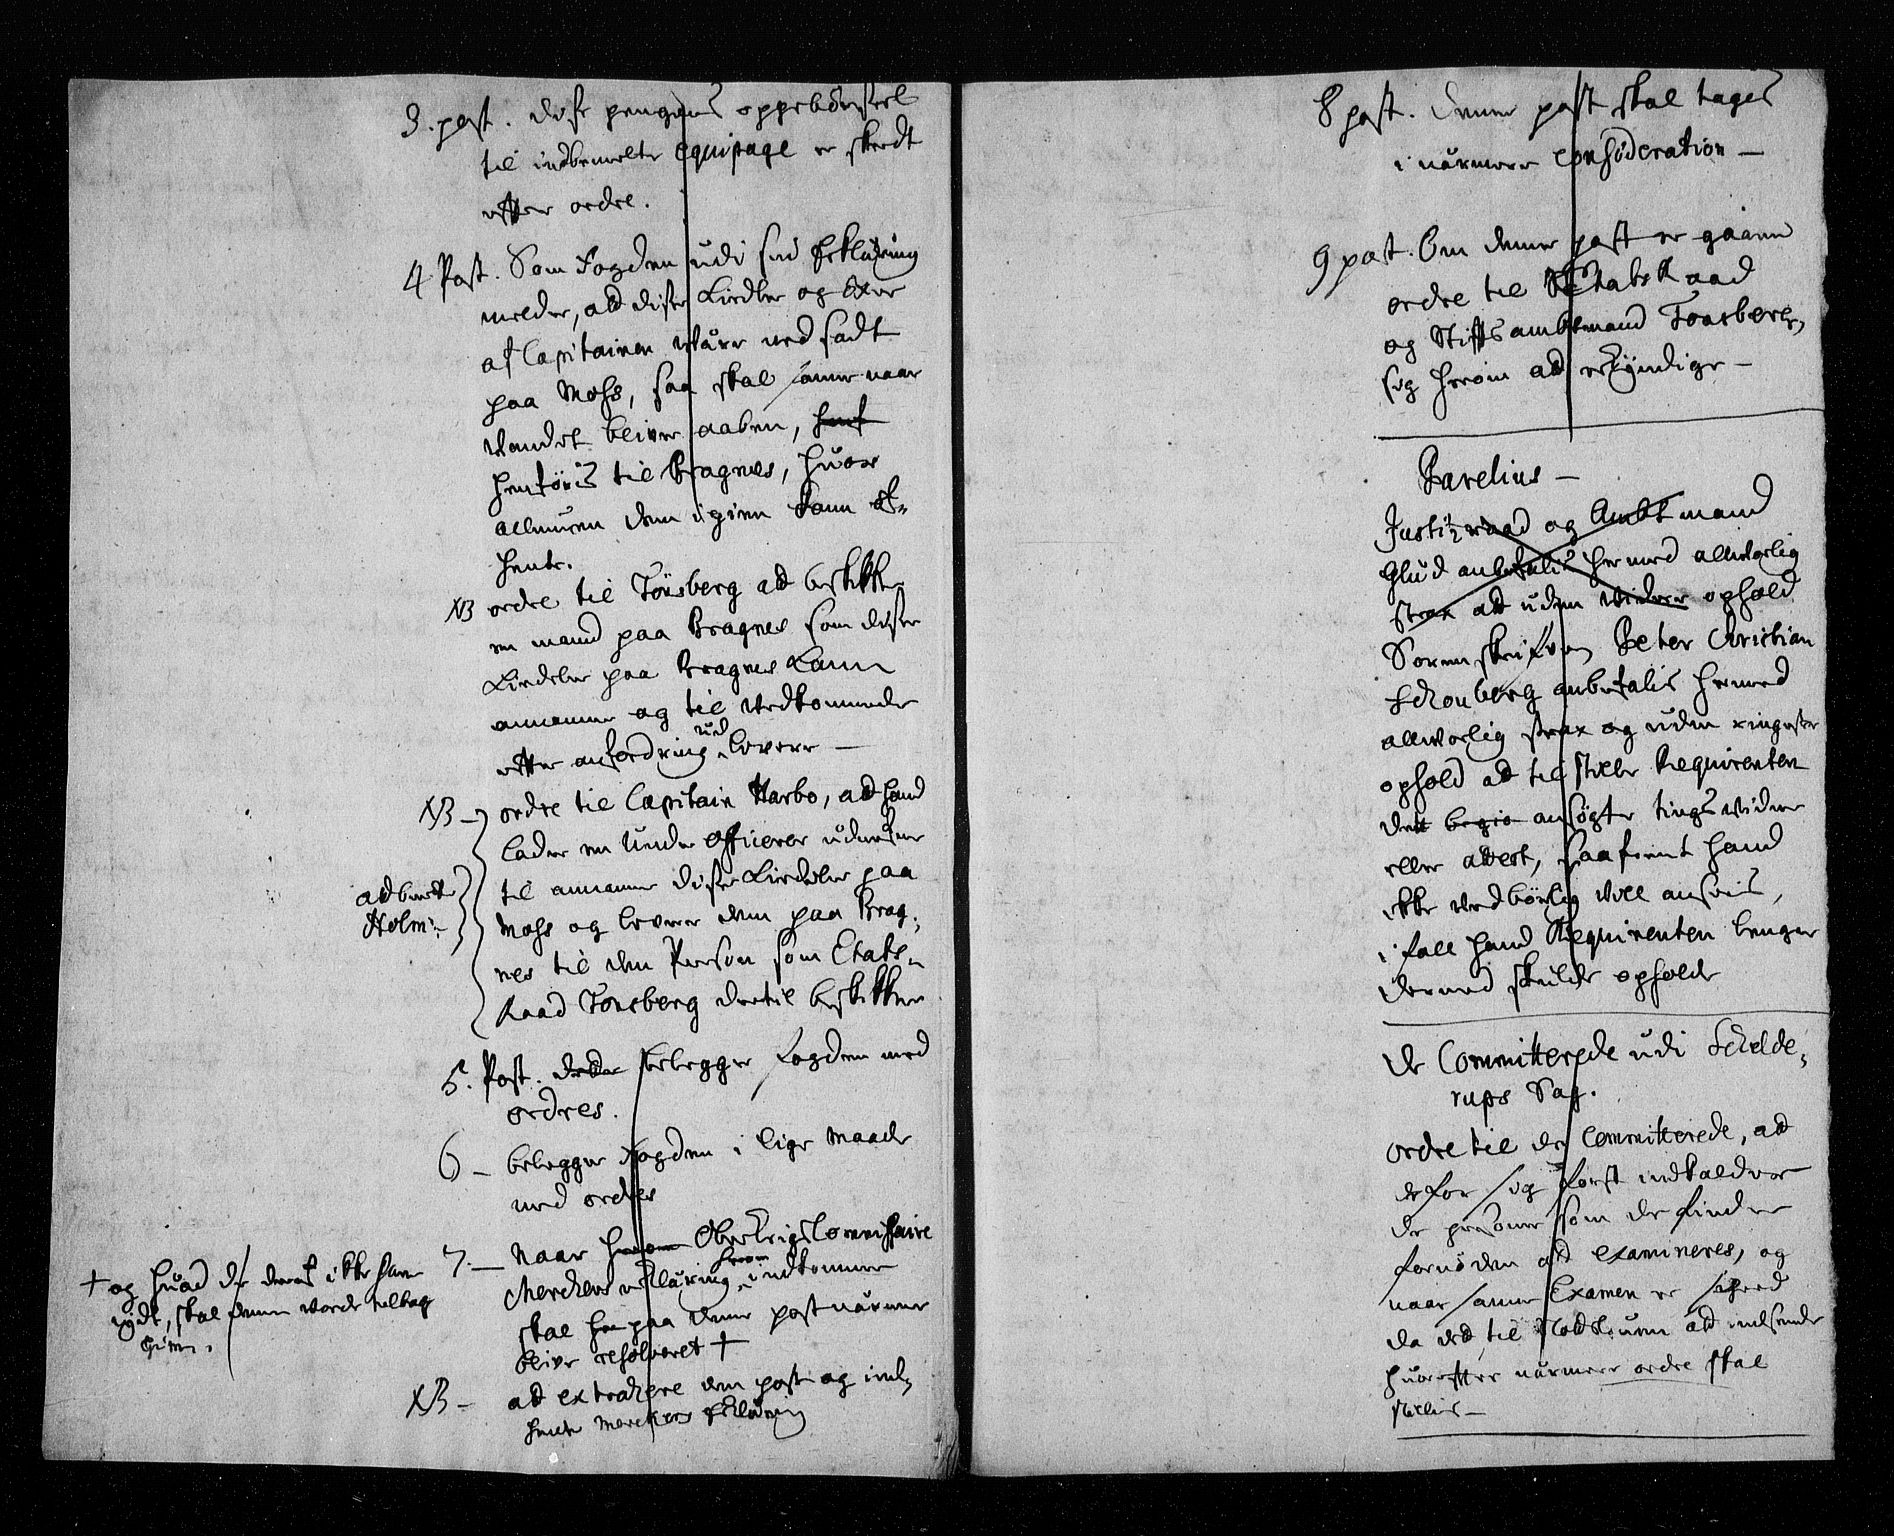 3. post. disse penges oppebörsel
til indbemelte equipage er skeedt
effter ordre.
4 Post. Som Fogden udi sin Erklæring
melder, att disse Kiedler og Exer
af Capitainen ware ned sadt
paa Moss, saa skal samme naar
Vandet bliver aaben,
henføris til Bragnes, huor
allmuen dem igien kann af-
hente.
NB ordre til Tönsberg ad beskikke
en mand paa Bragnes som disse
Kiedeler paa Bragnes kann
annamme og til Vedkommende
effter anfordring ud levere —
NB — ordre til Capitain Harbo, ad hand
lader en Under Officerer
til annamme disse Kiedeler paa
Moss og levere dem paa Brag-
nes til den Person som Etats-
Raad Tonsberg dertil beskikker
ad
Holm
5. Post. belegger Fogden med
ordres.
6 — belegger Fogden i lige Maade
med ordres
7. — Naar Ober Krigs Commissaire
Merckers erklæring herom indkommer
skal paa denne post nærmer
blive resolveret +
+ og huad de deraf ikke have
nydt, skal dem vorde tilbag
given.
NB — ad extrahere den post og ind-
hente Merckers Erklæring
8 post. denne post skal tages
i nærmere consideration —
9 post. Om denne post er gaaen
ordre til Etats Raad
og Stiffts ambtmand Tonsberg,
sig herom ad erkyndige —
Parelius —
Justitz raad og Ambtmand
Glud anbefalis hermed allvorlig
strax att uden videre ophold
Sorenskriffver Peter Christian
Schonberg anbefalis hermed
allvorlig strax og uden ringeste
ophold ad tilstille Requirenten
dett ansøgte tings vidne
eller attest, saafremt hand
ikke vedbörlig vill ansees,
i fall hand Requirenten lenger
dermed skulde opholde
De Committerede udi Schelde-
rups Sag.
Ordre til de Committerede, att
de for sig först indkalder
de personer som de finder
fornöden att examineres, og
naar samme Examen er skeed
da ded til Slodtslouen att indsende
huoreffter nærmere ordre skal
stilles —